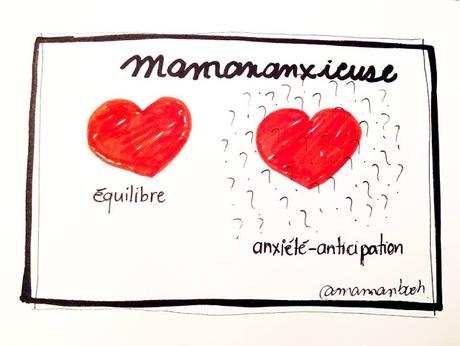 Mamananxieuse
équilibre
anxiété-anticipation
@mamanbooh